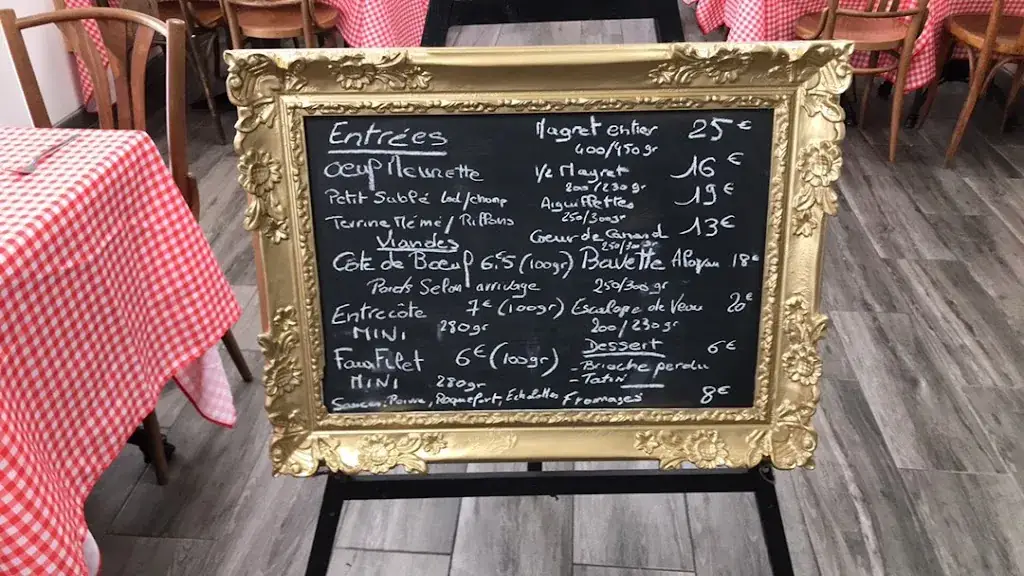 Entrées
œuf Meurette
Petit Sablé lad/champ
Terrine Mémé/Rillons
Viandes
Côte de Bœuf 6€5 (100gr)
Poids Selon arrivage
Entrecôte 7€ (100gr)
MINI 280gr
Faux Filet 6€ (100gr)
MINI 280gr
Sauces Poivre, Roquefort, Echalottes
Magret entier 25€
400/450gr
1/2 Magret 16€
200/230gr
Aiguillettes 19€
250/300gr
Cœur de Canard 13€
250/300gr
Bavette Aloyau 18€
250/300gr
Escalope de Veau 20€
200/230gr
Dessert 6€
- Brioche perdu
- Tatin
Fromages 8€